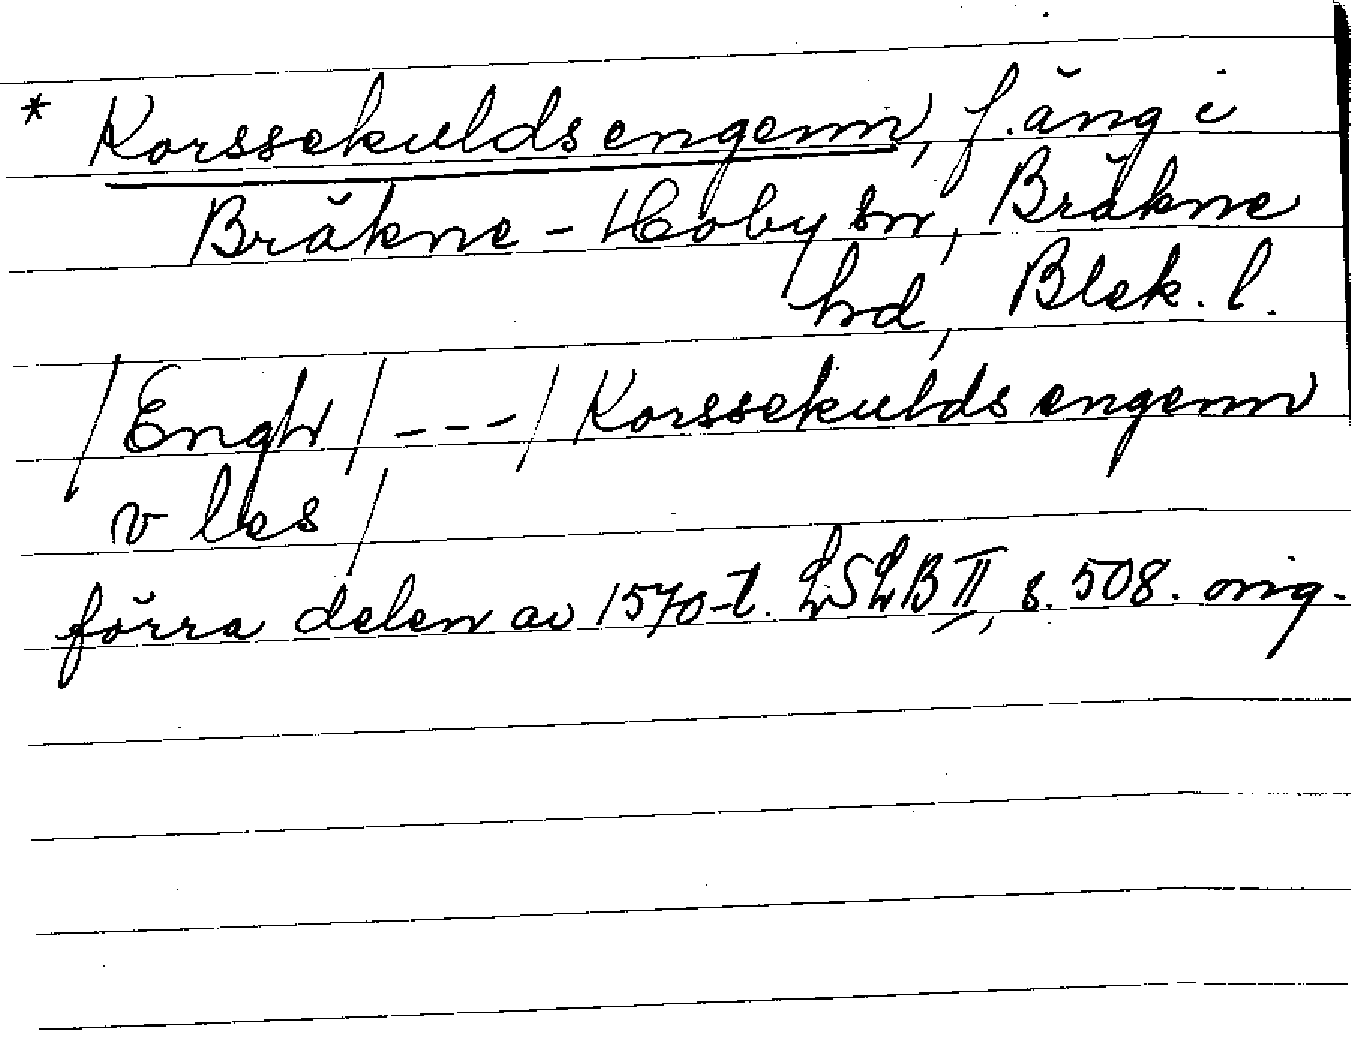 * Korssekulds engenn, f. äng i
Bräkne-Hoby sn, Bräkne
hd, Blek. l.
/Engh/ --- /Korssekulds engenn
v les/
förra delen av 1570-t. LSLB II, s. 508. orig.